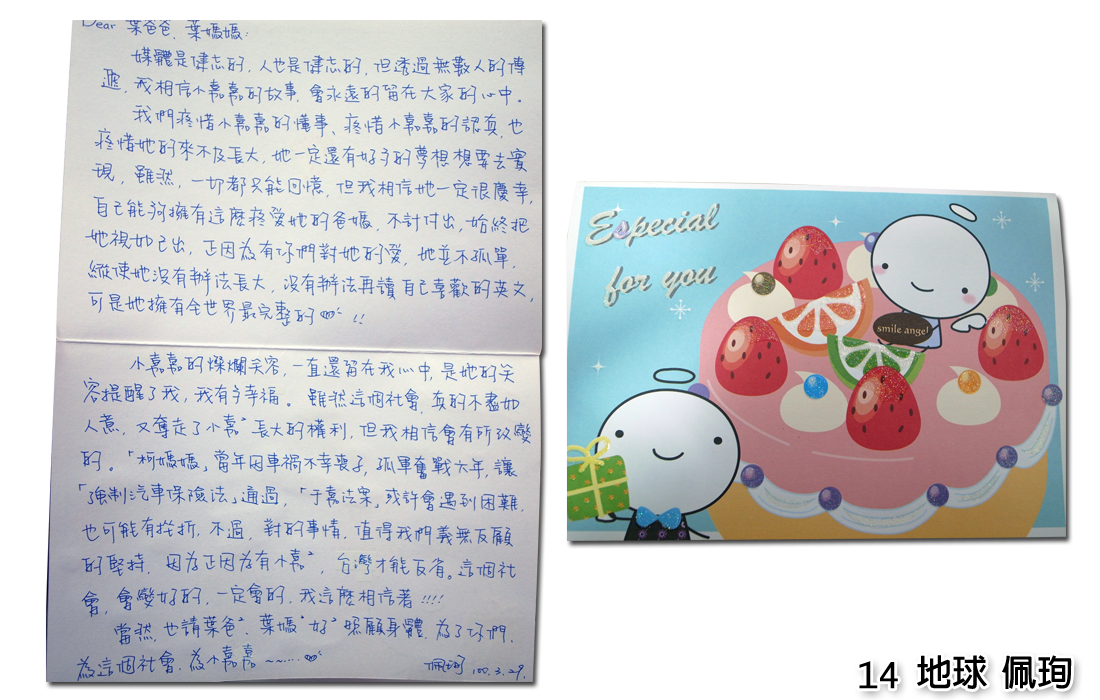 Dear 葉爸爸、葉媽媽:
媒體是健忘的,人也是健忘的,但透過無數人的傳
遞,我相信小嘉嘉的故事,會永遠的留在大家的心中。
我們疼惜小嘉嘉的懂事、疼惜小嘉嘉的認真,也
疼惜她的來不及長大,她一定還有好多的夢想想要去實
現,雖然,一切都只能回憶,但我相信她一定很慶幸,
自己能夠擁有這麼疼愛她的爸媽,不計付出,始終把
她視如己出,正因為有你們對她的愛,她並不孤單,
縱使她沒有辦法長大,沒有辦法再讀自己喜歡的英文,
可是她擁有全世界最完整的♡!!
小嘉嘉的燦爛笑容,一直還留在我心中,是她的笑
容提醒了我,我有多幸福。雖然這個社會,真的不盡如
人意,又奪走了小嘉〻長大的權利,但我相信會有所改變
的。「柯媽媽」當年因車禍不幸喪子,孤軍奮戰六年,讓
「強制汽車保險法」通過,「于嘉法案」或許會遇到困難,
也可能有挫折,不過,對的事情,值得我們義無反顧
的堅持,因為正因為有小嘉〻,台灣才能反省。這個社
會,會變好的,一定會的,我這麼相信著!!!!
當然,也請葉爸〻、葉媽〻好〻照顧身體,為了你們,
為這個社會,為小嘉嘉~~……♡
佩珣 100.3.29.
Especial
for you
smile angel
14 地球 佩珣